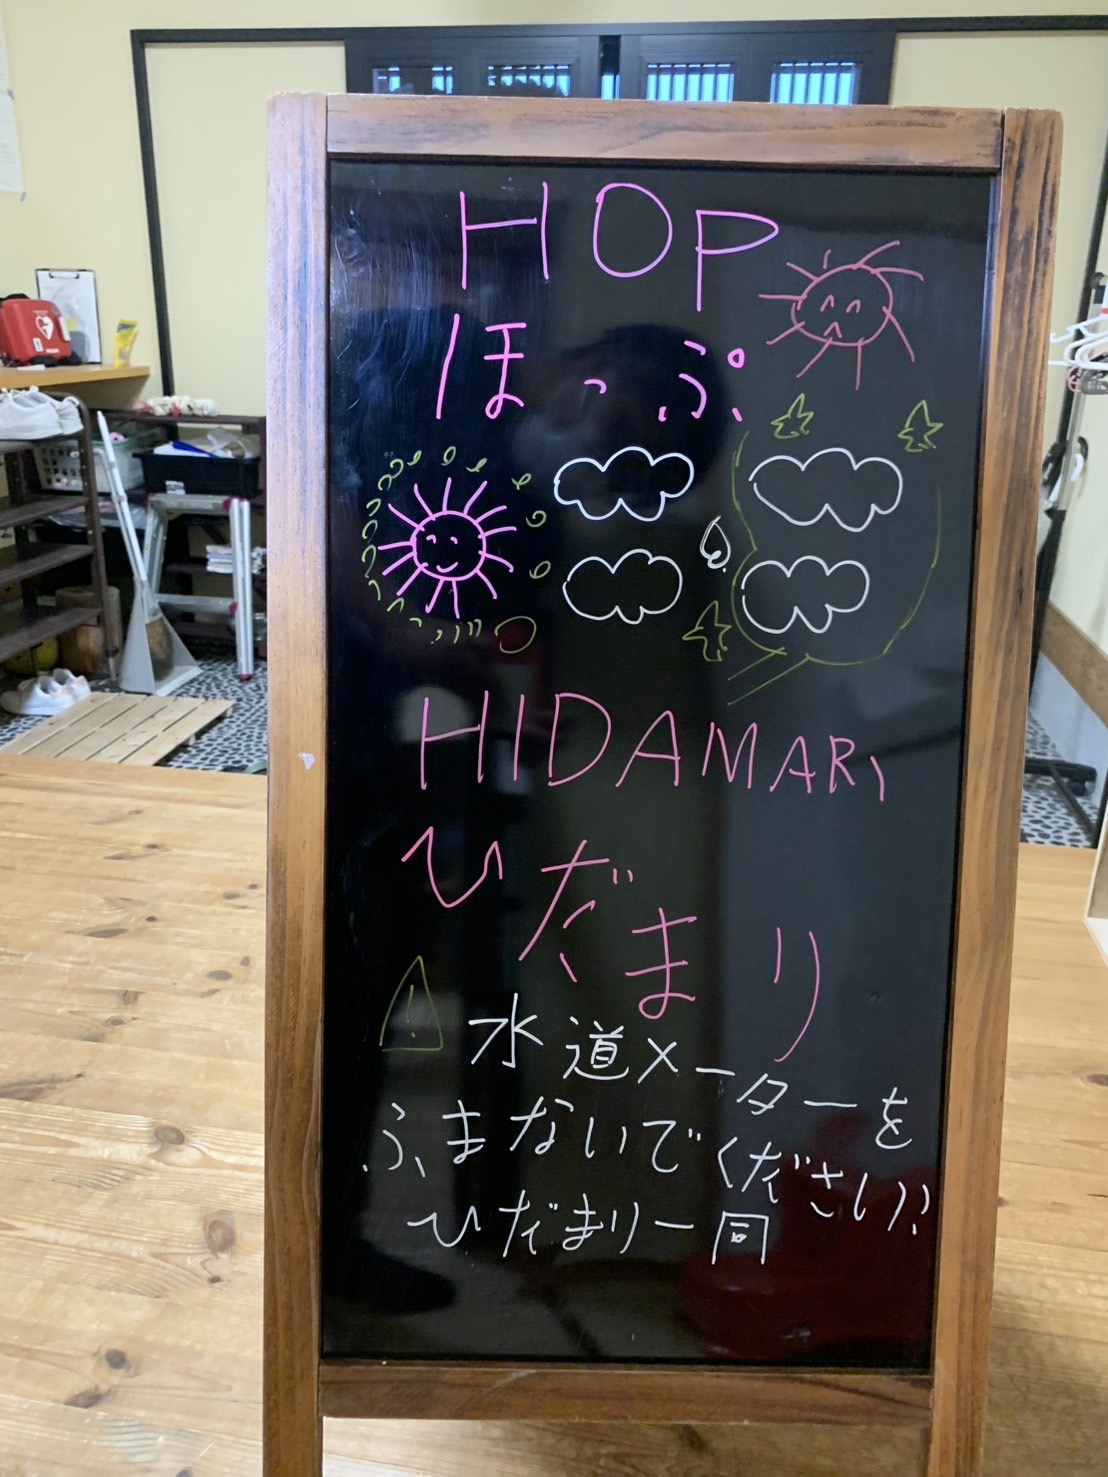 HOP
ほっぷ
HIDAMARI
ひだまり
水道メーターを
ふまないでください!!
ひだまり一同